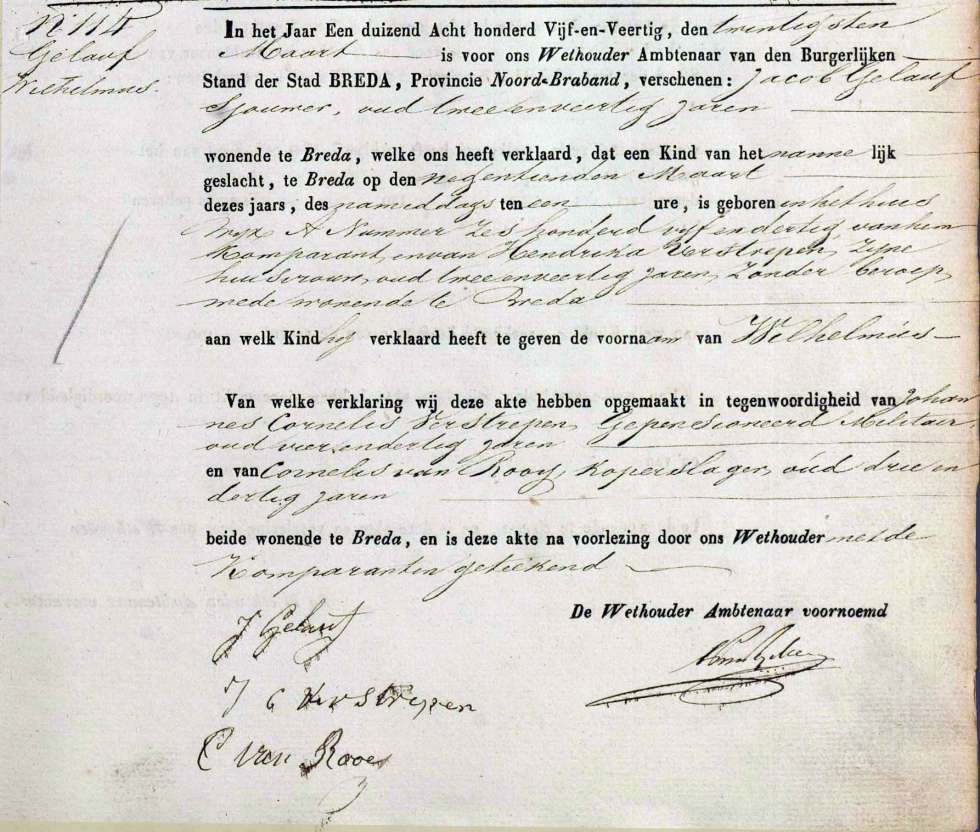 N° 114
Gelauf
Wilhelmus.
In het Jaar Een duizend Acht honderd Vijf-en-Veertig, den twintigsten
Maart is voor ons Wethouder Ambtenaar van den Burgerlijken
Stand der Stad BREDA, Provincie Noord-Braband, verschenen: Jacob Gelauf
Sjouwer, oud twee en veertig jaren
wonende te Breda, welke ons heeft verklaard, dat een Kind van het manne lijk
geslacht, te Breda op den negentienden Maart
dezes jaars, des namiddags ten een ure, is geboren in het huis
Wijk A Nummer Zes honderd vijf en dertig van hem
Komparant, en van Hendrika Verstrepen, Zijne
huisvrouw, oud twee en veertig jaren, Zonder beroep,
mede wonende te Breda
aan welk Kind hij verklaard heeft te geven de voornaam van Wilhelmus
Van welke verklaring wij deze akte hebben opgemaakt in tegenwoordigheid van Johan
nes Cornelis Verstrepen, Gepensioneerd Militair,
oud vier en dertig jaren
en van Cornelis van Rooy, Koperslager, oud drie en
dertig jaren
beide wonende te Breda, en is deze akte na voorlezing door ons Wethouder met de
Komparanten geteekend
De Wethouder Ambtenaar voornoemd
J Gelauf
J C Verstrepen
C van Rooe